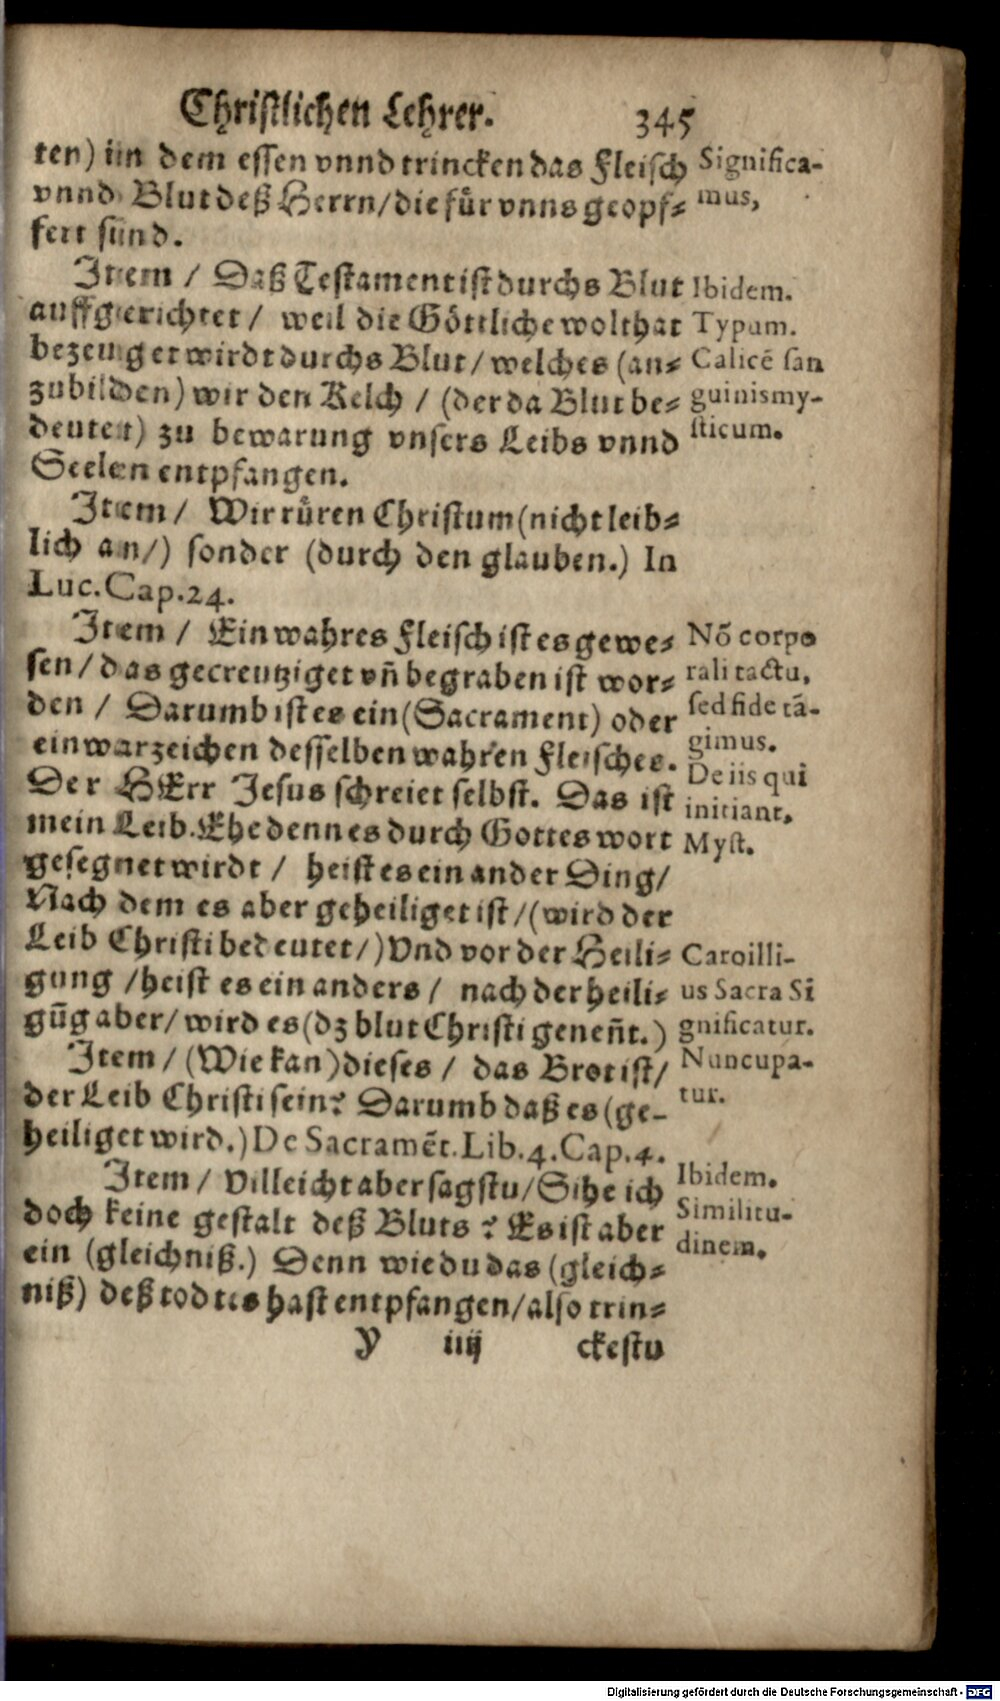 Christlichen Lehrer. 345
ten) im dem essen vnnd trincken das Fleisch
vnnd Blut deß Herrn/die fuͤr vnns geopf⸗
fert sind.
Item / Daß Testament ist durchs Blut
auffgerichtet / weil die Goͤttliche wolthat
bezeuget wirdt durchs Blut/ welches (an⸗
zubilden) wir den Kelch / (der da Blut be⸗
deutet) zu bewarung vnsers Leibs vnnd
Seelen entpfangen.
Item / Wir ruͤren Christum (nicht leib⸗
lich an/) sonder (durch den glauben.) In
Luc. Cap. 24.
Item / Ein wahres Fleisch ist es gewe⸗
sen/ das gecreutziget vñ begraben ist wor⸗
den / Darumb ist es ein (Sacrament) oder
ein warzeichen desselben wahren Fleisches.
Der HErr Jesus schreiet selbst. Das ist
mein Leib. Ehe denn es durch Gottes wort
gesegnet wirdt / heist es ein ander Ding/
Nach dem es aber geheiliget ist/ (wird der
Leib Christi bedeutet/) Vnd vor der Heili⸗
gung /heist es ein anders / nach der heili⸗
gũg aber/ wird es (dz blut Christi geneñt.)
Item / (Wie kan) dieses / das Brot ist/
der Leib Christi sein? Darumb daß es (ge-
heiliget wird.) De Sacramẽt. Lib. 4. Cap. 4.
Item / Villeicht aber sagstu/ Sihe ich
doch keine gestalt deß Bluts? Es ist aber
ein (gleichniß.) Denn wie du das (gleich⸗
niß) deß todtes hast entpfangen/also trin⸗
Y iiij ckestu
Significa-
mus,
Ibidem.
Typum.
Calicẽ san
guinis my-
sticum.
Nõ corpo
rali tactu,
sed fide tã-
gimus.
De iis qui
initiant.
Myst.
Caro illi-
us Sacra Si
gnificatur.
Nuncupa-
tur.
Ibidem.
Similitu-
dinem.
Digitalisierung gefördert durch die Deutsche Forschungsgemeinschaft - DFG